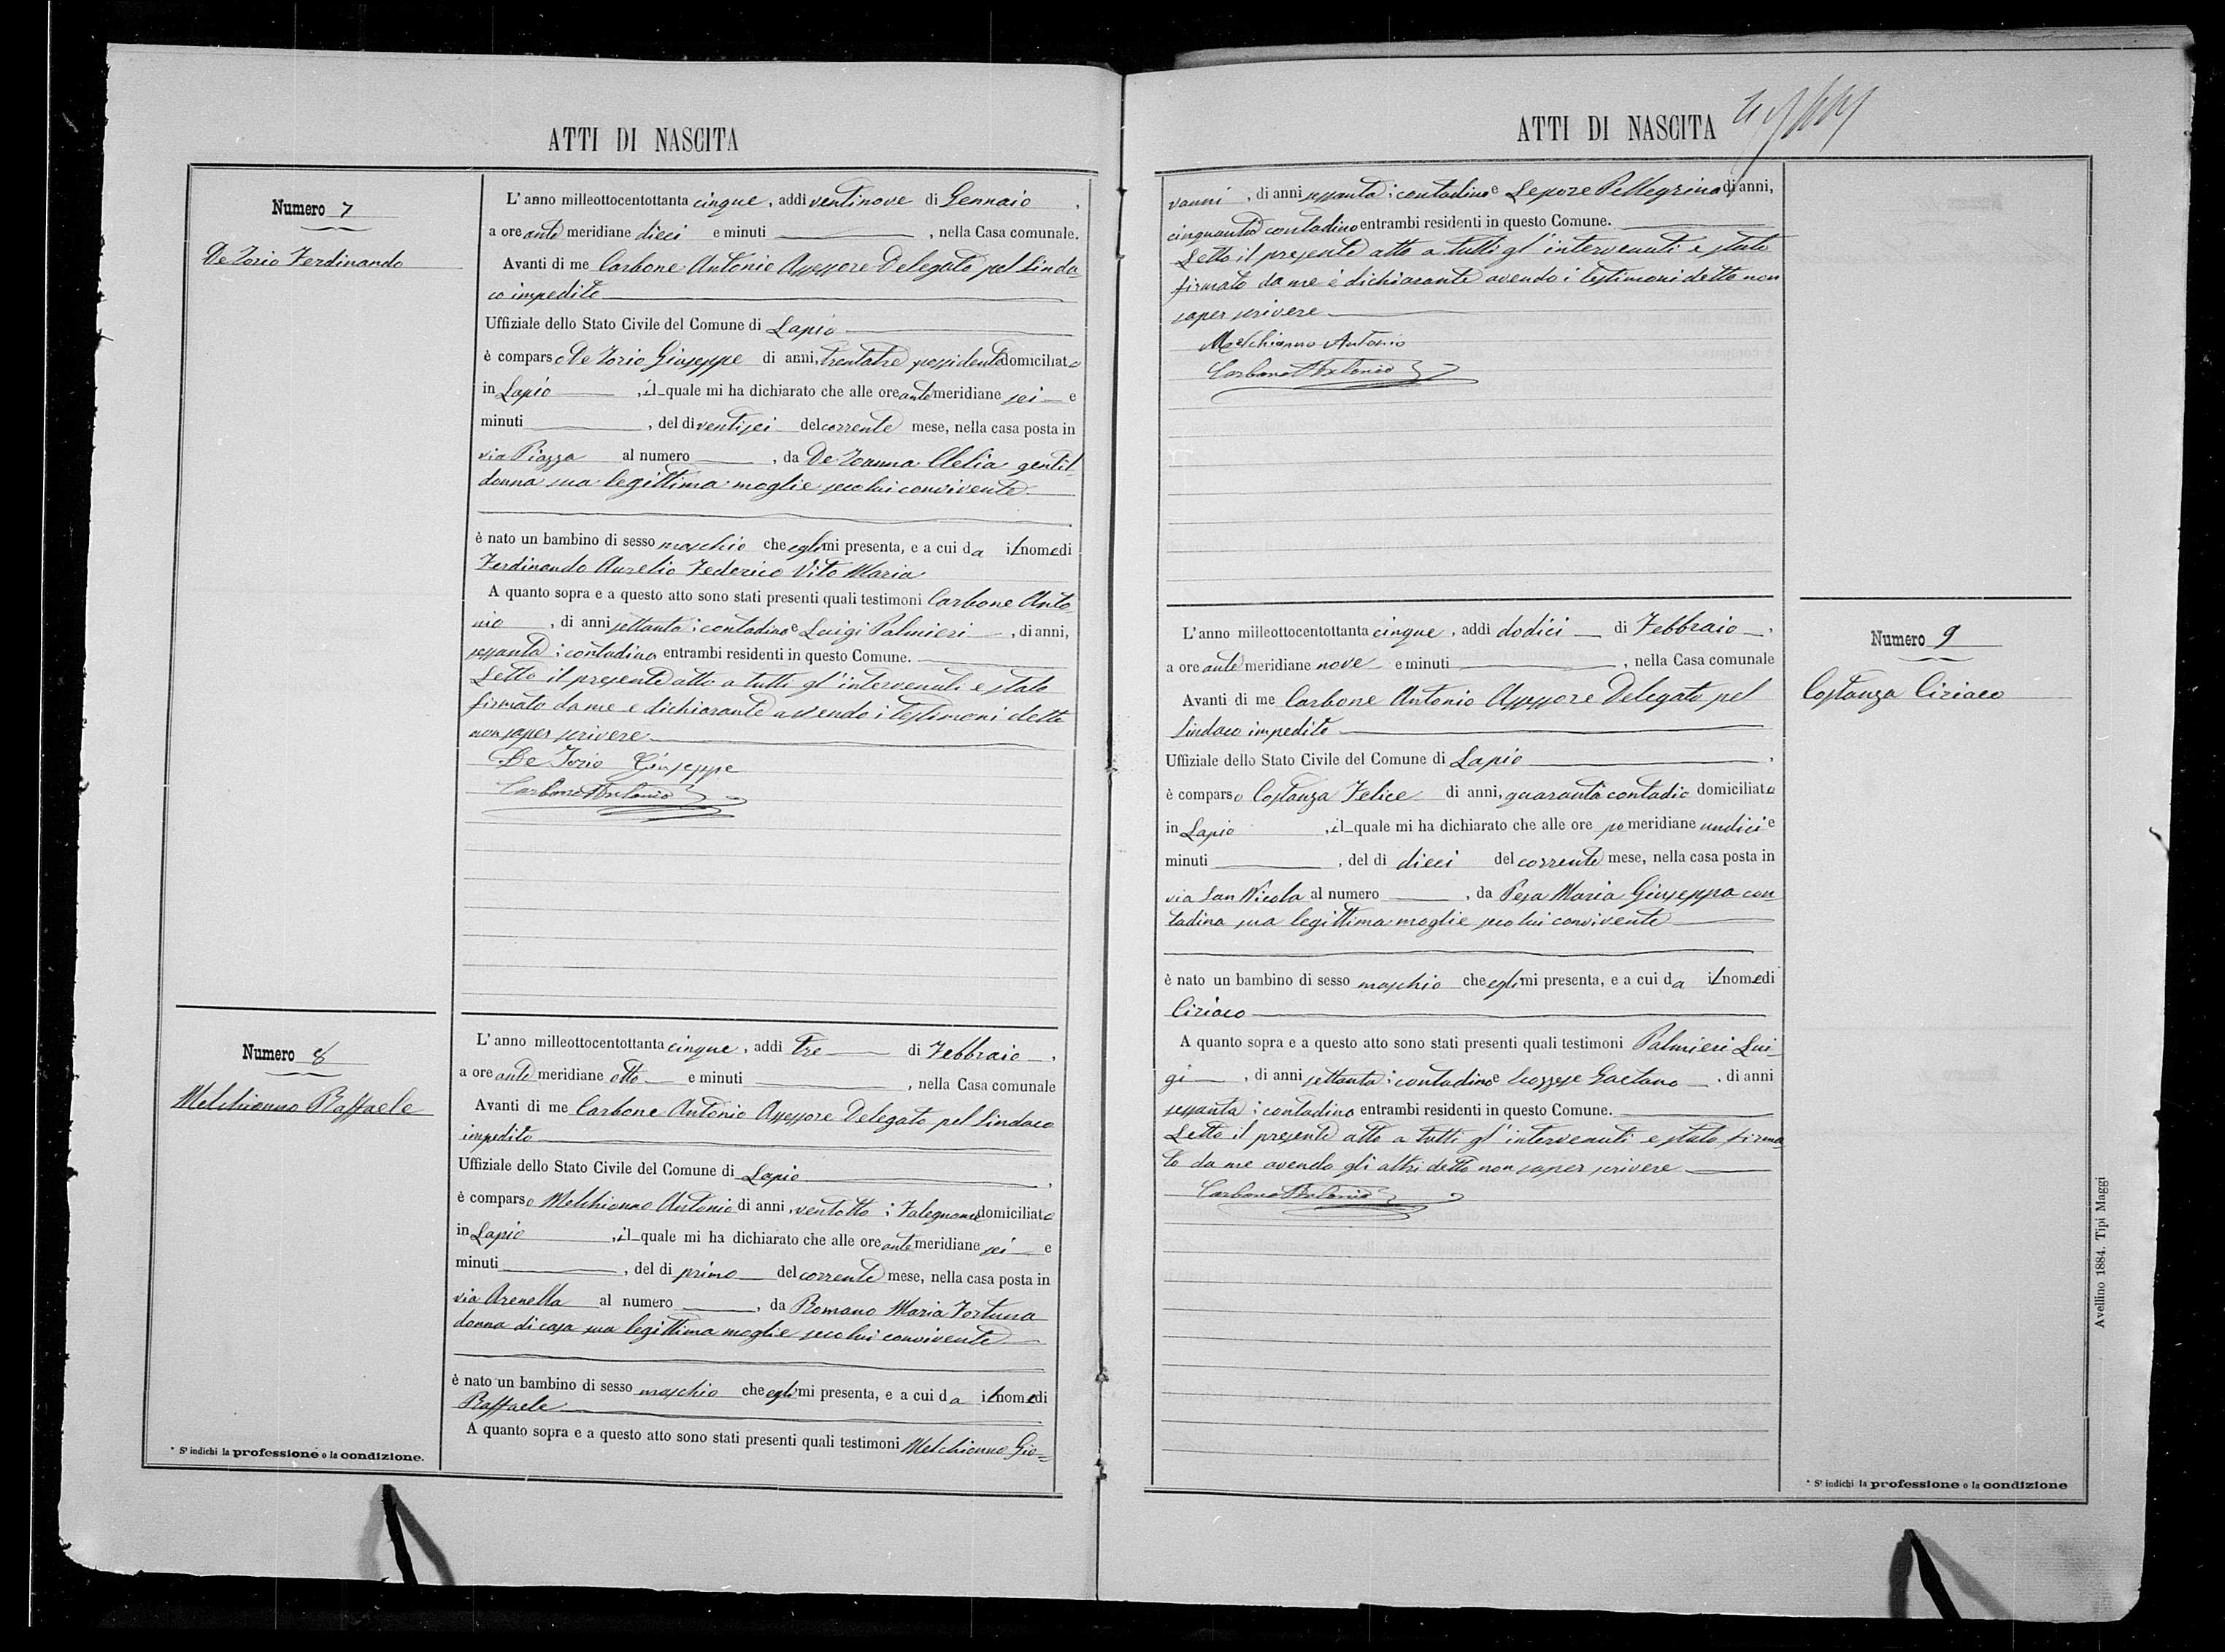 ATTI DI NASCITA
Numero 7
De Iorio Ferdinando
L'anno milleottocentottanta cinque, addì ventinove di Gennaio,
a ore ante meridiane dieci e minuti , nella Casa comunale.
Avanti di me Carbone Antonio Assessore Delegato pel Sinda-
co impedito
Uffiziale dello Stato Civile del Comune di Lapio
è comparso De Iorio Giuseppe di anni, trentatre possidente domiciliato
in Lapio , il quale mi ha dichiarato che alle ore ante meridiane sei e
minuti , del dì ventisei del corrente mese, nella casa posta in
via Piazza al numero , da De Ioanna Clelia gentil
donna sua legittima moglie seco lui convivente
è nato un bambino di sesso maschio che egli mi presenta, e a cui da il nome di
Ferdinando Aurelio Federico Vito Maria
A quanto sopra e a questo atto sono stati presenti quali testimoni Carbone Anto-
nio , di anni settanta : contadino e Luigi Palmieri , di anni,
sessanta : contadino entrambi residenti in questo Comune.
Letto il presente atto a tutti gl'intervenuti e stato
firmato da me e dichiarante avendo i testimoni detto
non saper scrivere
De Iorio Giuseppe
Carbone Antonio
Numero 8
Melchionno Raffaele
L'anno milleottocentottanta cinque, addì tre di Febbraio,
a ore ante meridiane otto e minuti , nella Casa comunale
Avanti di me Carbone Antonio Assessore Delegato pel Sindaco
impedito
Uffiziale dello Stato Civile del Comune di Lapio ,
è comparso Melchionno Antonio di anni, ventotto : Falegname domiciliato
in Lapio , il quale mi ha dichiarato che alle ore ante meridiane sei e
minuti , del dì primo del corrente mese, nella casa posta in
via Arenella al numero , da Romano Maria Fortuna
donna di casa sua legittima moglie seco lui convivente
è nato un bambino di sesso maschio che egli mi presenta, e a cui da il nome di
Raffaele
A quanto sopra e a questo atto sono stati presenti quali testimoni Melchionno Gio-
* S'indichi la professione o la condizione.
ATTI DI NASCITA
vanni , di anni sessanta : contadino e Lepore Pellegrino di anni,
cinquanta contadino entrambi residenti in questo Comune.
Letto il presente atto a tutti gl'intervenuti e stato
firmato da me e dichiarante avendo i testimoni detto non
saper scrivere
Melchionno Antonio
Carbone Antonio
Numero 9
Costanza Ciriaco
L'anno milleottocentottanta cinque, addì dodici di Febbraio,
a ore ante meridiane nove e minuti , nella Casa comunale
Avanti di me Carbone Antonio Assessore Delegato pel
Sindaco impedito
Uffiziale dello Stato Civile del Comune di Lapio ,
è comparso Costanza Felice di anni, quaranta contadio domiciliato
in Lapio , il quale mi ha dichiarato che alle ore po meridiane undici e
minuti , del dì dieci del corrente mese, nella casa posta in
via San Nicola al numero , da Pesa Maria Giuseppa con
tadina sua legittima moglie seco lui convivente
è nato un bambino di sesso maschio che egli mi presenta, e a cui da il nome di
Ciriaco
A quanto sopra e a questo atto sono stati presenti quali testimoni Palmieri Lui-
gi , di anni settanta : contadino e Gaetano , di anni
sessanta : contadino entrambi residenti in questo Comune.
Letto il presente atto a tutti gl'intervenuti e stato firma-
to da me avendo gli altri detto non saper scrivere
Carbone Antonio
* S'indichi la professione o la condizione
Avellino 1884. Tipi Maggi